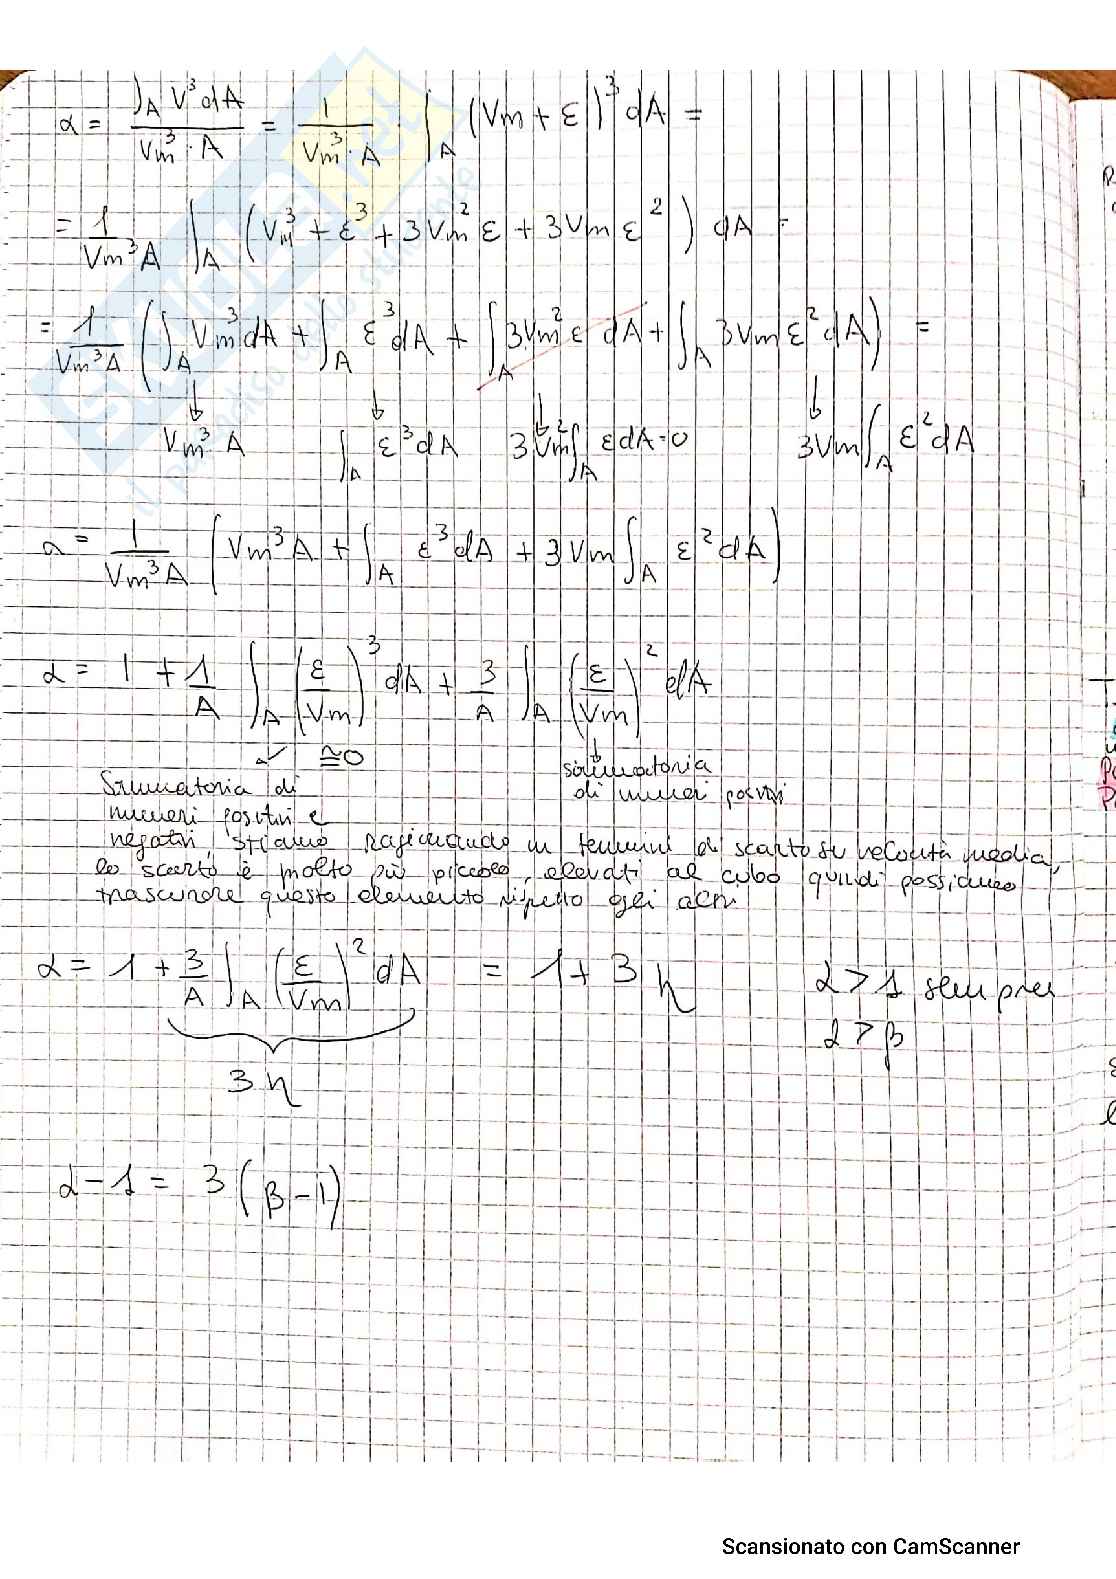 α = ∫_A V³dA / Vm³·A = 1 / Vm³·A · ∫_A (Vm + ε)³ dA =
= 1 / Vm³A ∫_A (Vm³ + ε³ + 3Vm²ε + 3Vm ε²) dA =
= 1 / Vm³A (∫_A Vm³dA + ∫_A ε³dA + ∫_A 3Vm²ε dA + ∫_A 3Vm ε²dA) =
↓ ↓ ↓ ↓
Vm³ A ∫_A ε³dA 3Vm²∫_A εdA=0 3Vm∫_A ε²dA
α = 1 / Vm³A (Vm³A + ∫_A ε³dA + 3Vm∫_A ε²dA)
α = 1 + 1/A ∫_A (ε/Vm)³ dA + 3/A ∫_A (ε/Vm)² dA
↙ ≅0 ↓
Sommatoria di
numeri positivi e
sommatoria
di numeri positivi
negativi, stiamo ragionando in termini di scarto su velocità media,
lo scarto è molto più piccolo, elevati al cubo quindi possiamo
trascurare questo elemento rispetto agli altri
α = 1 + 3/A ∫_A (ε/Vm)² dA = 1 + 3η α > 1 sempre
α > β
3η
α − 1 = 3(β − 1)
Scansionato con CamScanner